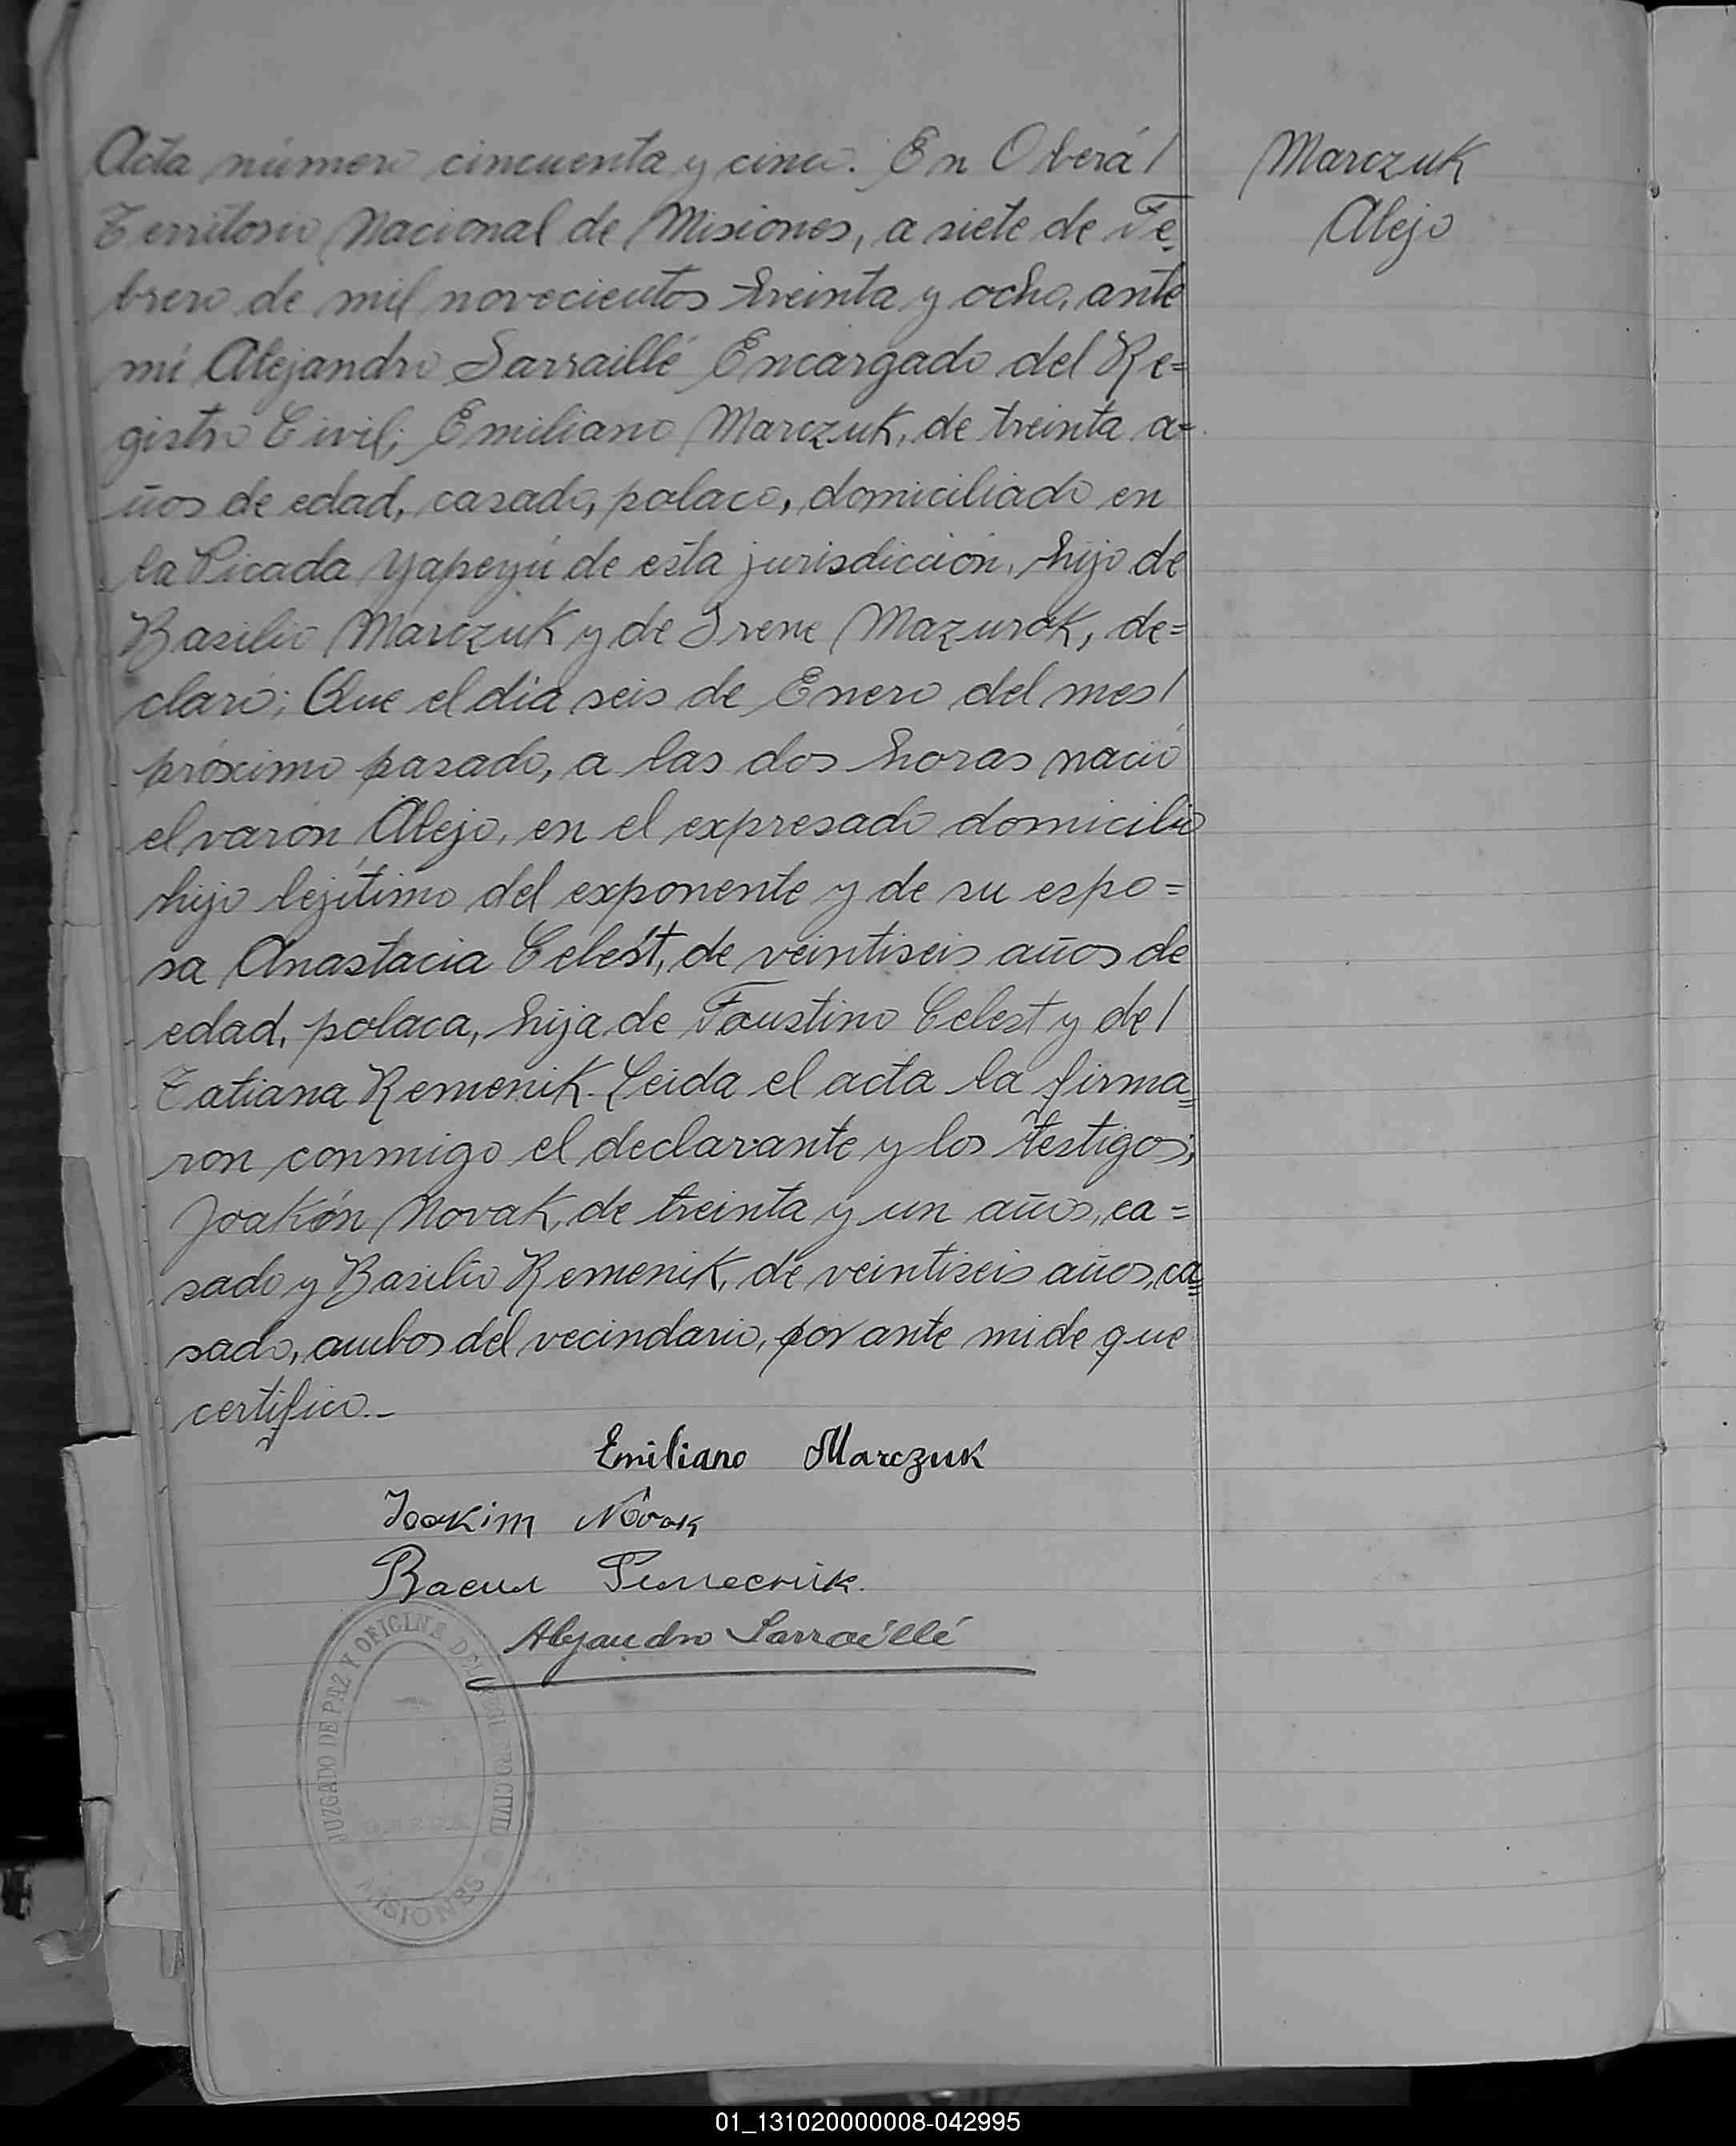 Acta número cincuenta y cinco. En Oberá /
Territorio Nacional de Misiones, a siete de Fe=
brero de mil novecientos treinta y ocho, ante
mi Alejandro Sarraillé Encargado del Re=
gistro Civil; Emiliano Marczuk, de treinta a=
ños de edad, casado, polaco, domiciliado en
la Picada Yapeyú de esta jurisdicción, hijo de
Basilio Marczuk y de Irene Mazurok, de=
claró: Que el día seis de Enero del mes /
próximo pasado, a las dos horas nació
el varón Alejo, en el expresado domicilio
hijo lejítimo del exponente y de su espo=
sa Anastacia Celest, de veintiseis años de
edad, polaca, hija de Faustino Celest y de /
Tatiana Remenik. Leida el acta la firma=
ron conmigo el declarante y los testigos;
Joakón Novak, de treinta y un años, ca=
sado y Basilio Remenik, de veintiseis años, ca=
sado, ambos del vecindario, por ante mi de que
certifico.-
Marczuk
Alejo
Emiliano Marczuk
Joakim Novak
Alejandro Sarraillé
JUZGADO DE PAZ Y OFICINA DEL REGISTRO CIVIL
MISIONES
01_131020000008-042995